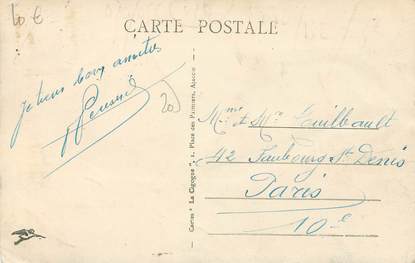 10 €
CARTE POSTALE
bons amitiés
20
Cartes "La Cigogne", 1, Place des Palmiers, Ajaccio
Mme et Mr Guilbault
42 Faubourg St Denis
Paris
10e